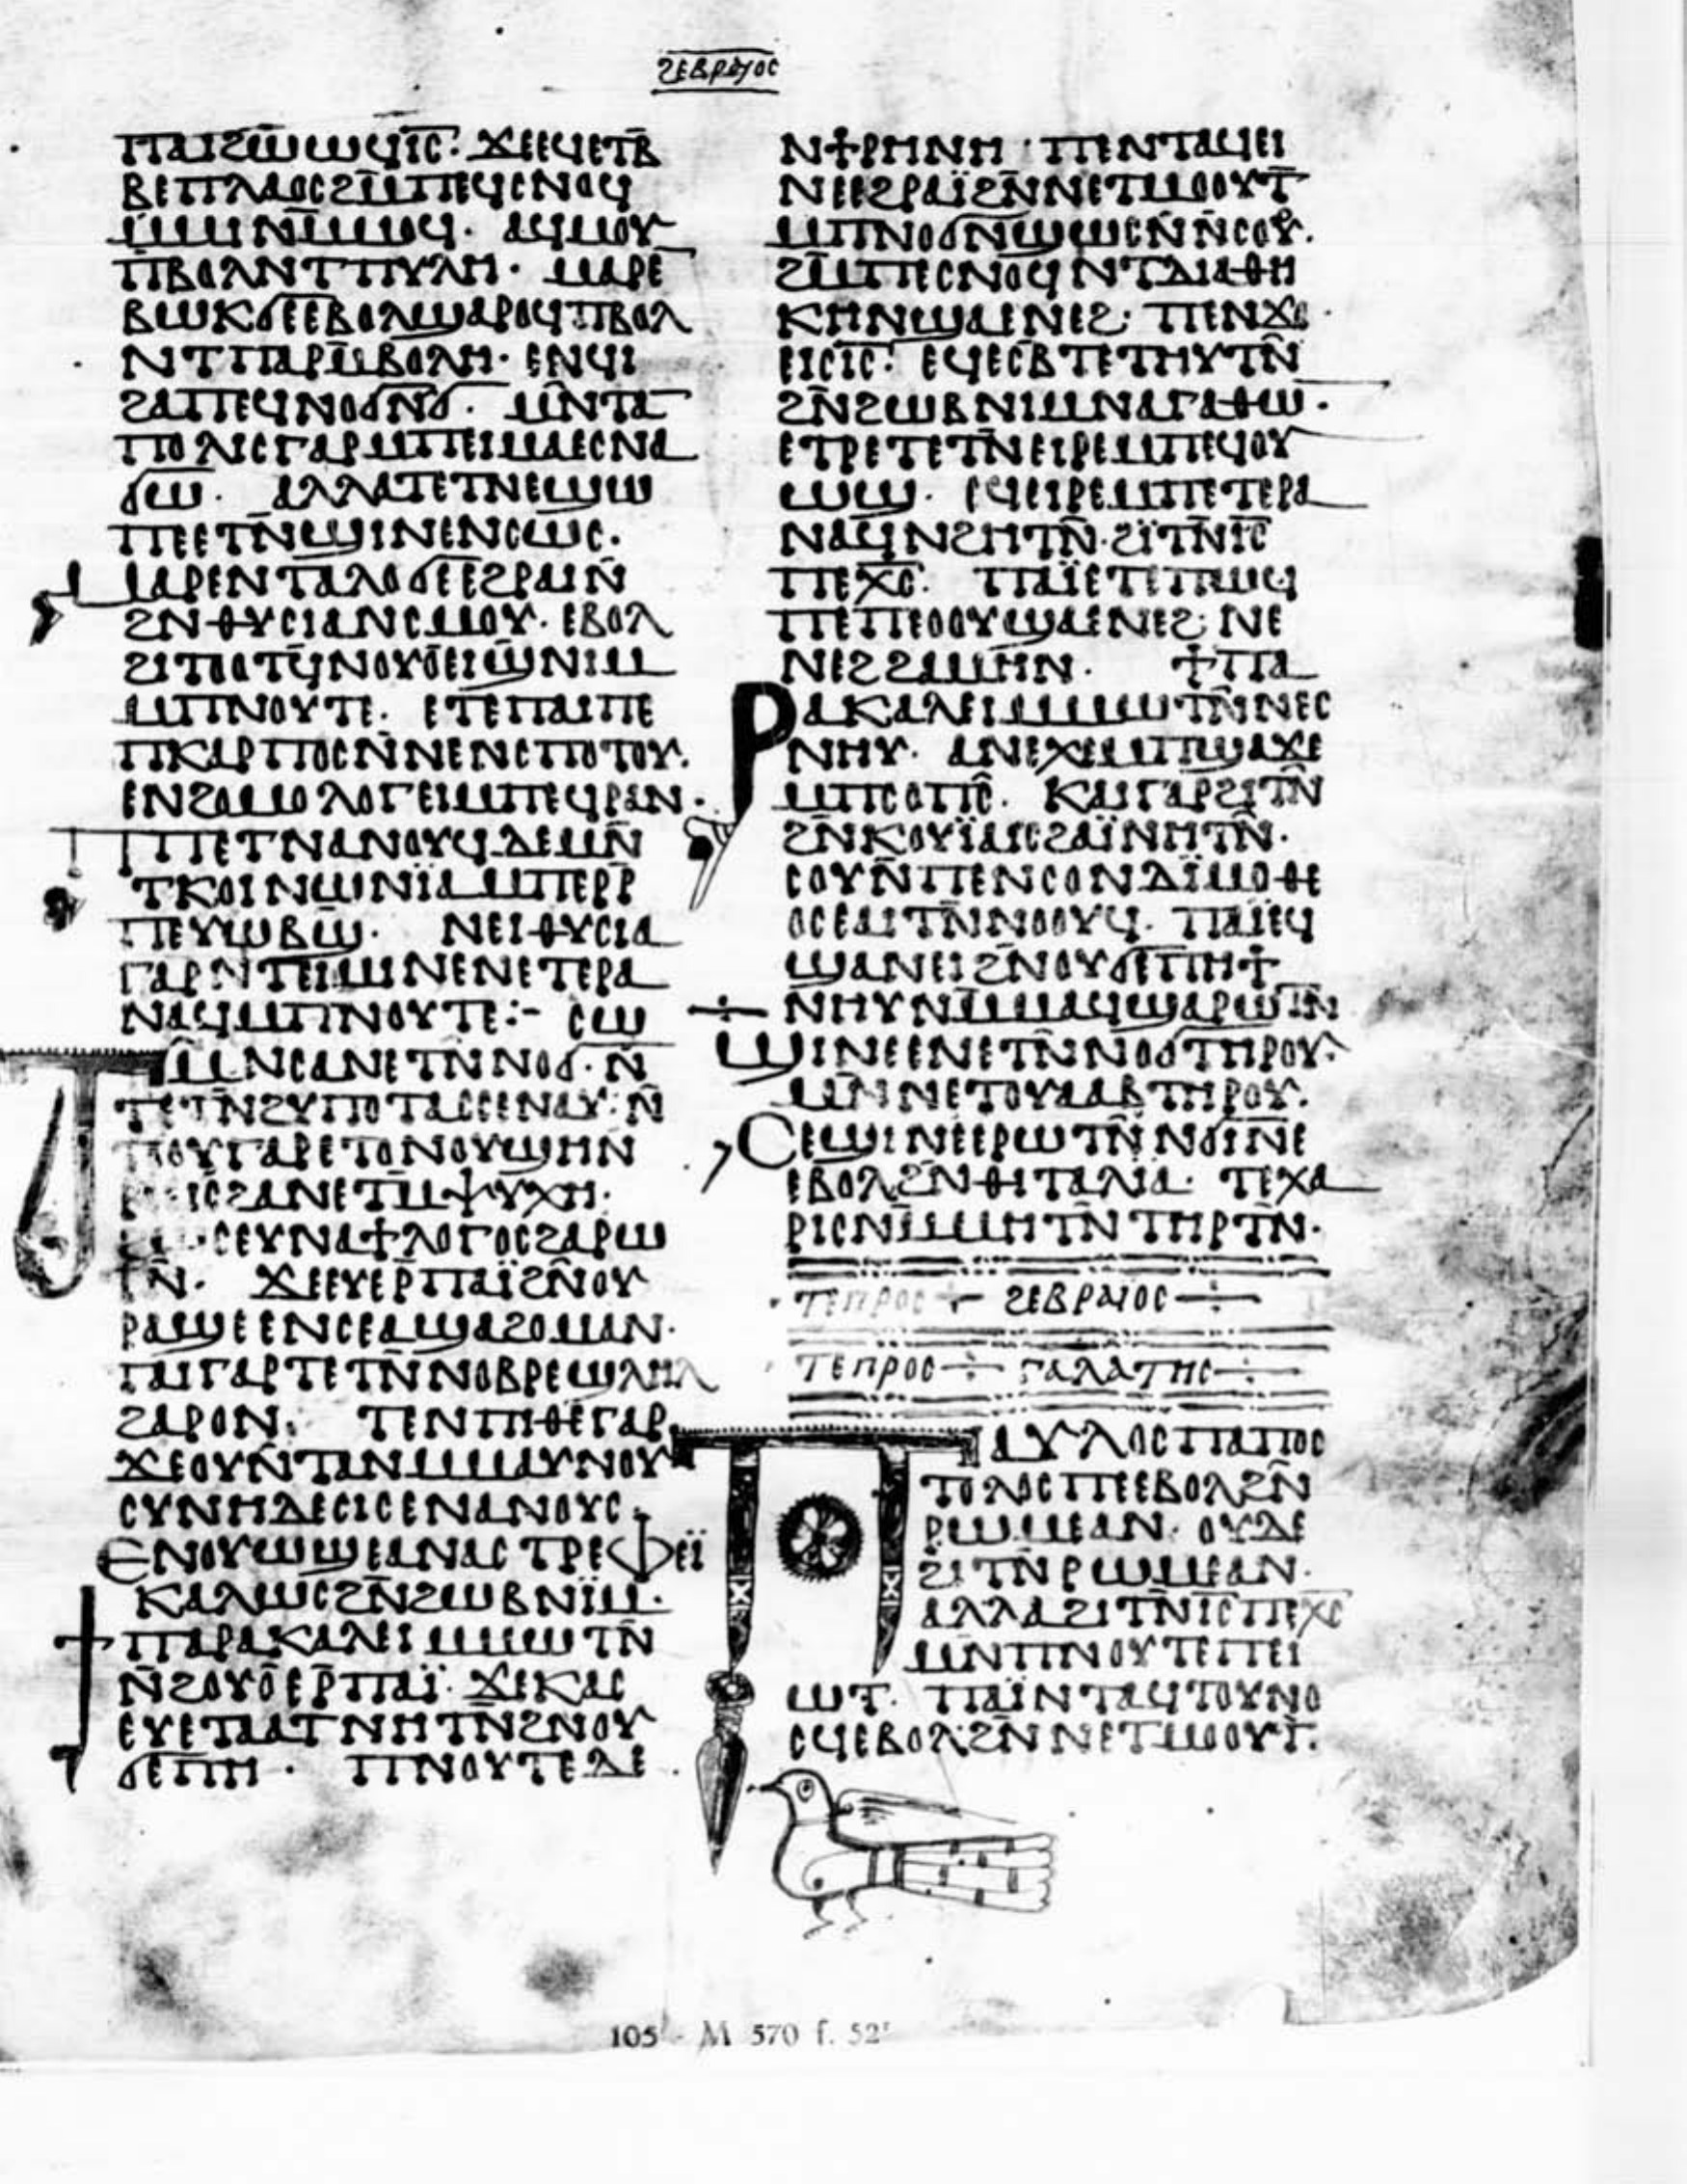 ϩⲉⲃⲣⲁⲓⲟⲥ
ⲡⲁⲓϩⲱⲱϥⲓ̅ⲥ̅· ϫⲉⲉϥⲉⲧⲃ̅
ⲃⲉⲡⲗⲁⲟⲥϩⲙ̅ⲡⲉϥⲥⲛⲟϥ
ⲙ̅ⲙⲓⲛⲙ̅ⲙⲟϥ· ⲁϥⲙⲟⲩ
ⲡ̅ⲃⲟⲗⲛⲧⲡⲩⲗⲏ· ⲙⲁⲣⲉ
ⲃⲱⲕϭⲉⲉⲃⲟⲗϣⲁⲣⲟϥⲡ̅ⲃⲟⲗ
ⲛⲧⲡⲁⲣⲙ̅ⲃⲟⲗⲏ· ⲉⲛϥⲓ
ϩⲁⲡⲉϥⲛⲟϭⲛϭ̅· ⲙⲛ̅ⲧⲁ
ⲡⲟⲗⲓⲥⲅⲁⲣⲙ̅ⲡⲉⲓⲙⲁⲉⲥⲛⲁ
ϭⲱ· ⲁⲗⲗⲁⲧⲉⲧⲛⲉϣⲱ
ⲡⲉⲉⲧⲛ̅ϣⲓⲛⲉⲛⲥⲱⲥ·
ⲙⲁⲣⲉⲛⲧⲁⲗⲟϭⲉⲉϩⲣⲁⲓⲛ̅
ϩⲛⲑⲩⲥⲓⲁⲛⲥⲙⲟⲩ· ⲉⲃⲟⲗ
ϩⲓⲧⲟⲟⲧϥ̅ⲛⲟⲩⲟⲉⲓϣⲛⲓⲙ
ⲙⲡⲛⲟⲩⲧⲉ· ⲉⲧⲉⲡⲁⲓⲡⲉ
ⲡⲕⲁⲣⲡⲟⲥⲛ̅ⲛⲉⲛⲥⲡⲟⲧⲟⲩ·
ⲉⲛϩⲟⲙⲟⲗⲟⲅⲉⲓⲙⲡⲉϥⲣⲁⲛ·
ⲡⲡⲉⲧⲛⲁⲛⲟⲩϥⲇⲉⲙⲛ̅
ⲧⲕⲟⲓⲛⲱⲛⲓ̈ⲁⲙ̅ⲡⲉⲣⲣ̅
ⲡⲉⲩⲱⲃϣ̅· ⲛⲉⲓⲑⲩⲥⲓⲁ
ⲅⲁⲣⲛⲧⲉⲓⲙⲓⲛⲉⲛⲉⲧⲉⲣⲁ
ⲛⲁϥⲙⲡⲛⲟⲩⲧⲉ:- ⲥⲱ
ⲧⲙ̅ⲛⲥⲁⲛⲉⲧⲛⲛⲟϭ·ⲛ̅
ⲧⲉⲧⲛ̅ϩⲩⲡⲟⲧⲁⲥⲥⲉⲛⲁⲩ·ⲛ̅
ⲧⲟⲟⲩⲅⲁⲣⲉⲧⲟⲛⲟⲩϣⲏⲛ
ⲣⲟⲉⲓⲥϩⲁⲛⲉⲧⲙ̅ⲯⲩⲭⲏ·
ⲥⲉⲩⲛⲁϯⲗⲟⲅⲟⲥϩⲁⲣⲱ
ⲧⲛ̅· ϫⲉⲉⲩⲉⲣ̅ⲡⲁⲓ̈ϩⲛ̅ⲟⲩ
ⲣⲁϣⲉⲉⲛⲥⲉⲁϣⲁϩⲟⲙⲁⲛ·
ⲡⲁⲓⲅⲁⲣⲧⲉⲧⲛ̅ⲛⲟⲃⲣⲉϣⲗⲏⲗ
ϩⲁⲣⲟⲛ· ⲧⲉⲛⲡⲏⲑⲉⲅⲁⲣ
ϫⲉⲟⲩⲛ̅ⲧⲁⲛⲙⲙⲁⲩⲛⲟⲩ
ⲥⲩⲛⲏⲇⲉⲥⲓⲥⲉⲛⲁⲛⲟⲩⲥ·
ⲉⲛⲟⲩⲱϣⲉⲁⲛⲁⲥⲧⲣⲉⲫⲉⲓ̈
ⲕⲁⲗⲱⲥϩⲛ̅ϩⲱⲃⲛⲓ̈ⲙ·
ϯⲡⲁⲣⲁⲕⲁⲗⲉⲓⲙⲙⲱⲧⲛ̅
ⲛ̅ϩⲟⲩⲟ̅ⲉⲣ̅ⲡⲁⲓ̈· ϫⲉⲕⲁⲥ
ⲉⲩⲉⲧⲁⲁⲧⲛⲏⲧⲛϩⲛⲟⲩ
ϭⲉⲡⲏ· ⲡⲛⲟⲩⲧⲉⲇⲉ·
ⲛϯⲣⲏⲛⲏ· ⲡⲉⲛⲧⲁϥⲉⲓ
ⲛⲉⲉϩⲣⲁⲓ̈ϩⲛ̅ⲛⲉⲧⲙⲟⲟⲩⲧ̅
ⲙⲡⲛⲟϭⲛ̅ϣⲱⲥⲛ̅ⲛ̅ⲥⲟⲩ·
ϩⲙ̅ⲡⲉⲥⲛⲟϥⲛⲧⲇⲓⲁⲑⲏ
ⲕⲏⲛϣⲁⲉⲛⲉϩ· ⲡⲉⲛϫⲟ
ⲉⲓⲥⲓ̅ⲥ̅· ⲉϥⲉⲥⲃⲧⲉⲧⲏⲩⲧⲛ̅
ϩⲛ̅ϩⲱⲃⲛⲓⲙⲛⲁⲅⲁⲑⲱ·
ⲉⲧⲣⲉⲧⲉⲧⲛ̅ⲉⲓⲣⲉⲙⲡⲉϥⲟⲩ
ⲱϣ· ⲉϥⲉⲓⲣⲉⲙⲡⲉⲧⲉⲣⲁ
ⲛⲁϥⲛϩⲏⲧⲛ̅·ϩⲓ̈ⲧⲛⲓ̅ⲥ̅
ⲡⲉⲭ̅ⲥ̅· ⲡⲁⲓ̈ⲉⲧⲉⲡⲱϥ
ⲡⲉⲡⲉⲟⲟⲩϣⲁⲉⲛⲉϩ· ⲛⲉ
ⲛⲉϩϩⲁⲙⲏⲛ· ϯⲡⲁ
ⲣⲁⲕⲁⲗⲉⲓⲙⲙⲱⲧⲛ̅ⲛⲉⲥ
ⲛⲏⲩ· ⲁⲛⲉⲭⲉⲙⲡϣⲁϫⲉ
ⲙⲡⲥⲟⲡⲥ̅· ⲕⲁⲓⲅⲁⲣϩⲓⲧⲛ̅
ϩⲛ̅ⲕⲟⲩⲓ̈ⲁⲓⲥϩⲁⲓ̈ⲛⲏⲧⲛ̅·
ⲥⲟⲩⲛ̅ⲡⲉⲛⲥⲟⲛⲇⲓ̈ⲙⲟⲑⲉ
ⲟⲥⲉⲁⲓⲧⲛ̅ⲛⲟⲟⲩϥ· ⲡⲁⲓ̈ⲉϥ
ϣⲁⲛⲉⲓϩⲛⲟⲩϭⲉⲡⲏϯ
ⲛⲏⲩⲛⲙ̅ⲙⲁϥϣⲁⲣⲱⲧⲛ
ϣⲓⲛⲉⲉⲛⲉⲧⲛ̅ⲛⲟϭⲧⲏⲣⲟⲩ·
ⲙⲛ̅ⲛⲉⲧⲟⲩⲁⲁⲃⲧⲏⲣⲟⲩ·
ⲥⲉϣⲓⲛⲉⲉⲣⲱⲧⲛ̅ⲛϭⲓⲛⲉ
ⲉⲃⲟⲗϩⲛ̅ⲑⲓⲧⲁⲗⲓⲁ· ⲧⲉⲭⲁ
ⲣⲓⲥⲛⲙ̅ⲙⲏⲧⲛ̅ⲧⲏⲣⲧⲛ̅·
ⲧⲉⲡⲣⲟⲥ ÷ ϩⲉⲃⲣⲁⲓⲟⲥ ÷
ⲧⲉⲡⲣⲟⲥ ÷ ⲅⲁⲗⲁⲧⲏⲥ ÷
ⲡⲁⲩⲗⲟⲥⲡⲁⲡⲟⲥ
ⲧⲟⲗⲟⲥⲡⲉⲉⲃⲟⲗϩⲛ̅
ⲣⲱⲙⲉⲁⲛ· ⲟⲩⲇⲉ
ϩⲓⲧⲛ̅ⲣⲱⲙⲉⲁⲛ·
ⲁⲗⲗⲁϩⲓⲧⲛ̅ⲓ̅ⲥ̅ⲡⲉⲭ̅ⲥ̅
ⲙⲛⲡⲛⲟⲩⲧⲉⲡⲉⲓ
ⲱⲧ· ⲡⲁⲓ̈ⲛⲧⲁϥⲧⲟⲩⲛⲟ
ⲥϥⲉⲃⲟⲗϩⲛ̅ⲛⲉⲧⲙⲟⲟⲩⲧ·
105 - M 570 f. 52ʳ